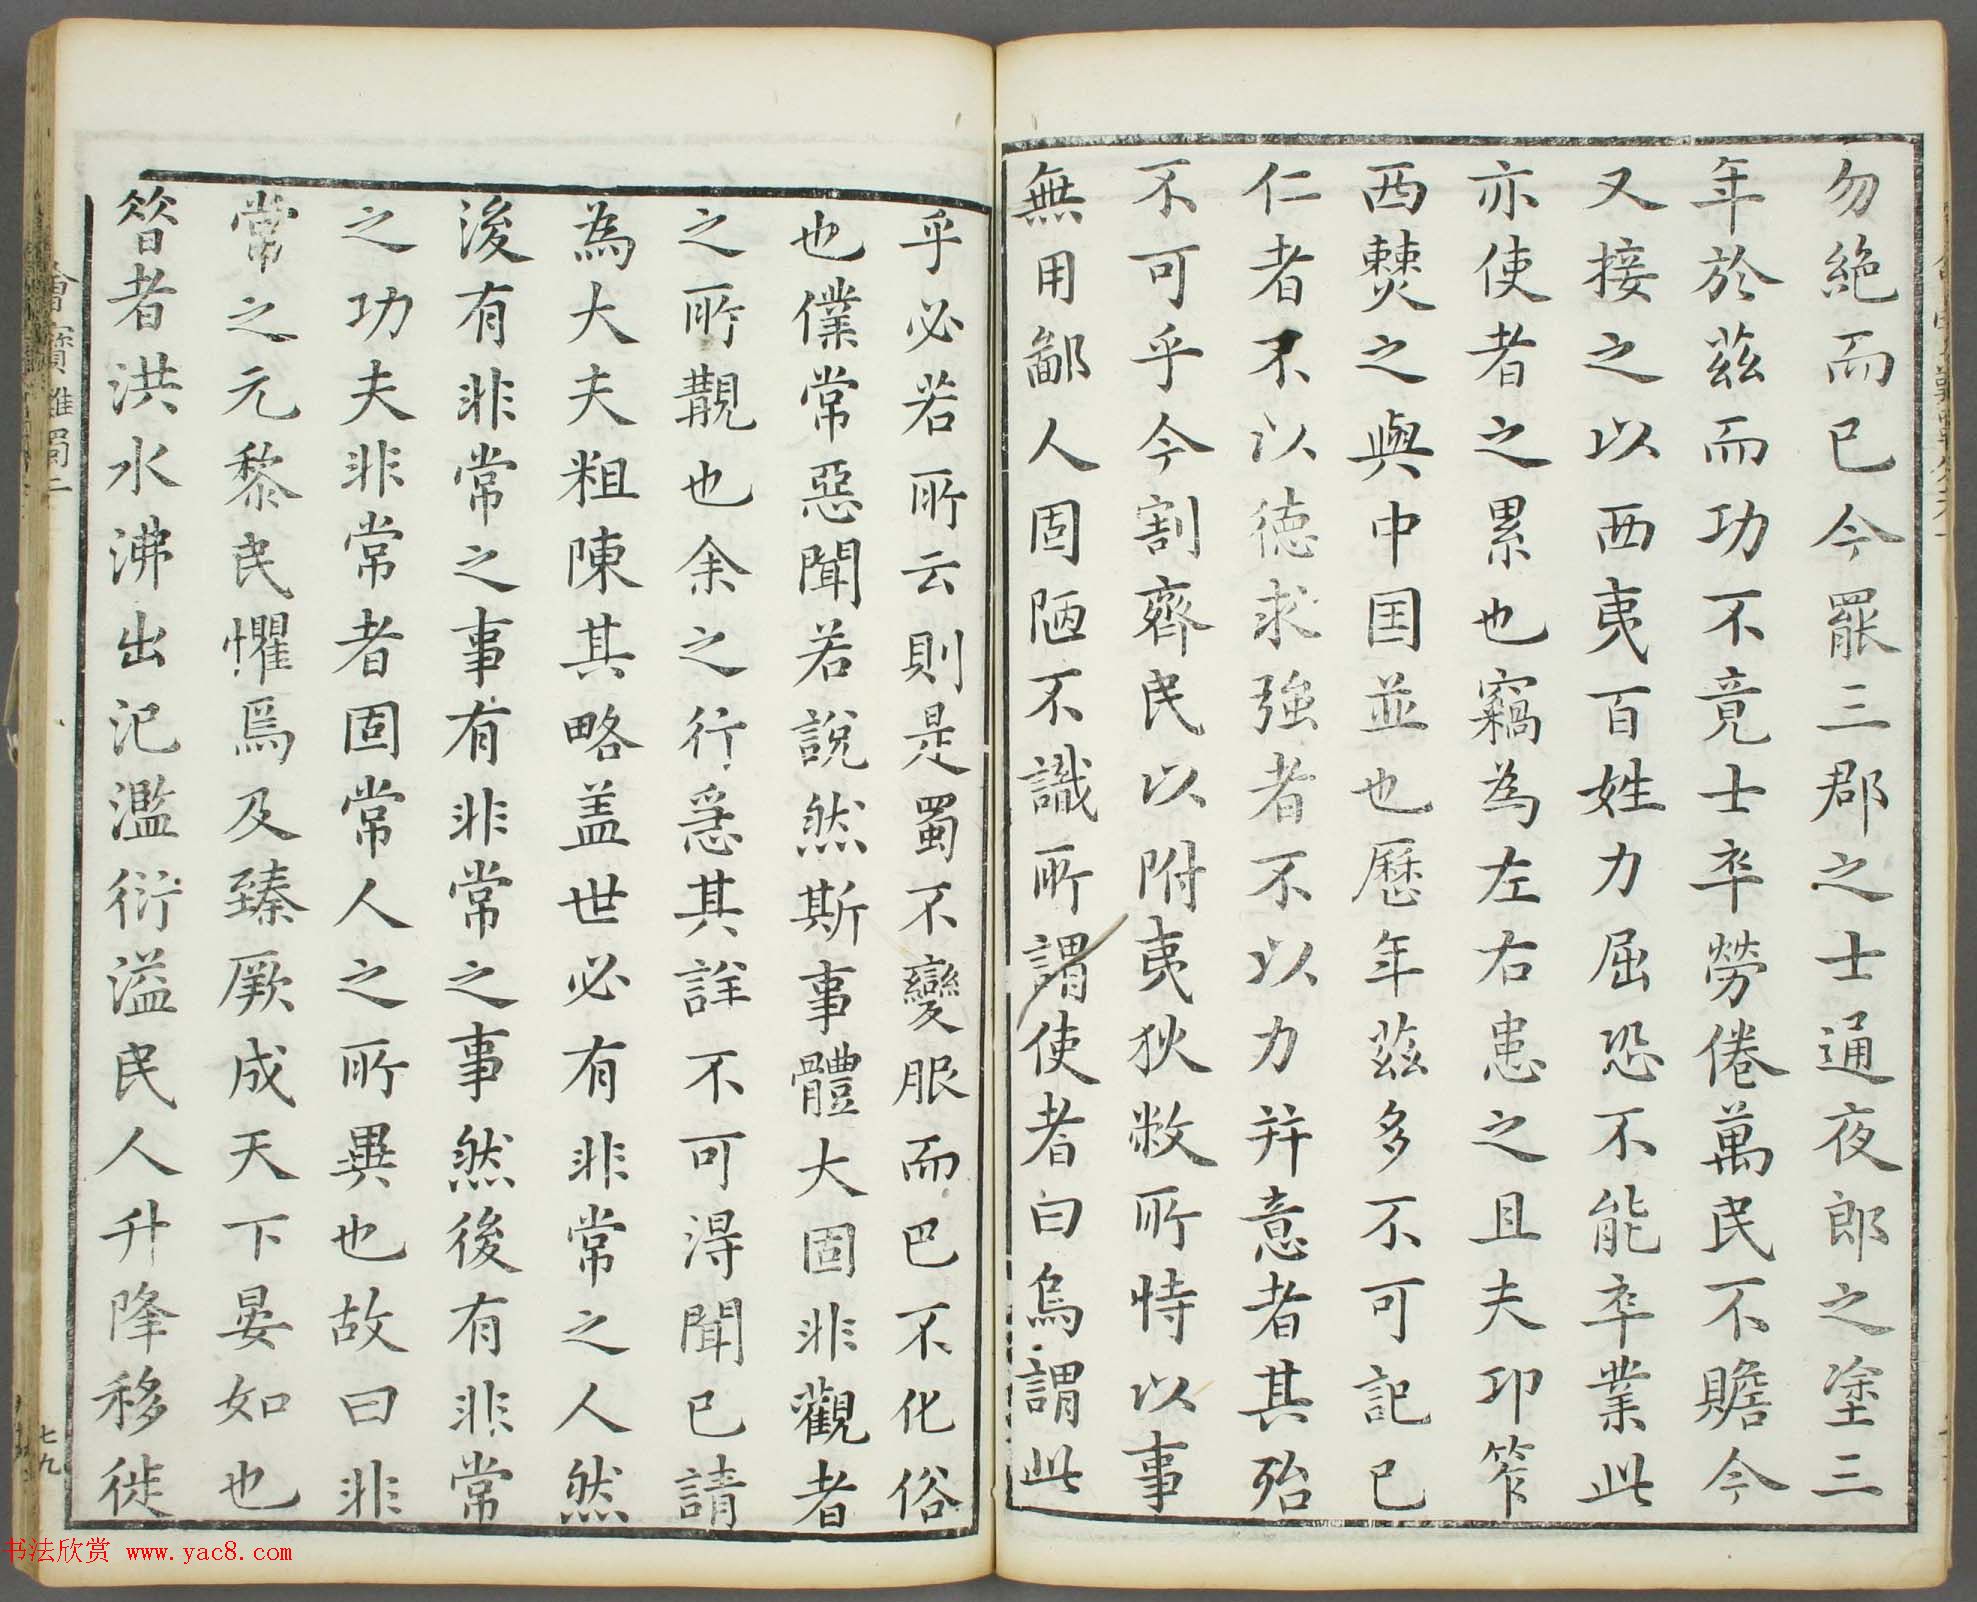 勿絶而已今罷三郡之士通夜郎之塗三
年於茲而功不竟士卒勞倦萬民不贍今
又接之以西夷百姓力屈恐不能卒業此
亦使者之累也竊為左右患之且夫卭筰
西僰之與中国並也歷年茲多不可記已
仁者不以徳求強者不以力并意者其殆
不可乎今割齊民以附夷狄敝所恃以事
無用鄙人固陋不識所謂使者曰烏謂此
乎必若所云則是蜀不變服而巴不化俗
也僕常惡聞若說然斯事體大固非觀者
之所覯也余之行急其詳不可淂聞已請
為大夫粗陳其略盖世必有非常之人然
後有非常之事有非常之事然後有非常
之功夫非常者固常人之所異也故曰非
常之元黎民懼焉及臻厥成天下晏如也
昔者洪水沸出氾濫衍溢民人升降移徙
七九
书法欣赏 www.yac8.com